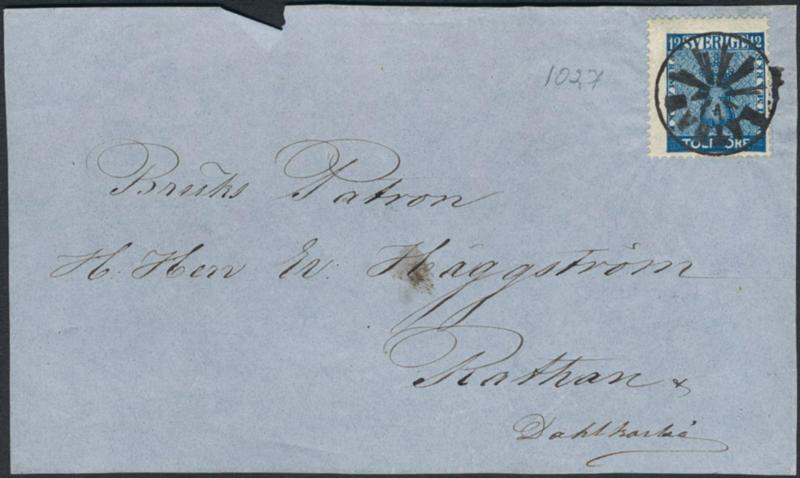 12 SVERIGE 12
TOLF ÖRE
1027
Bruks Patron
H. Herr Er. Häggström
Rathan &
Dahlkarlså